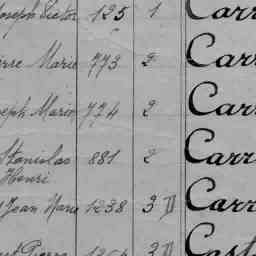 Joseph Victor 125 1 Carr
Pierre Marie 773 2 Carr
Joseph Marie 774 2 Carr
Stanislas 881 2 Carr
Henri
Jean Marie 1238 3 II Carr
Pierre 3 II Cast